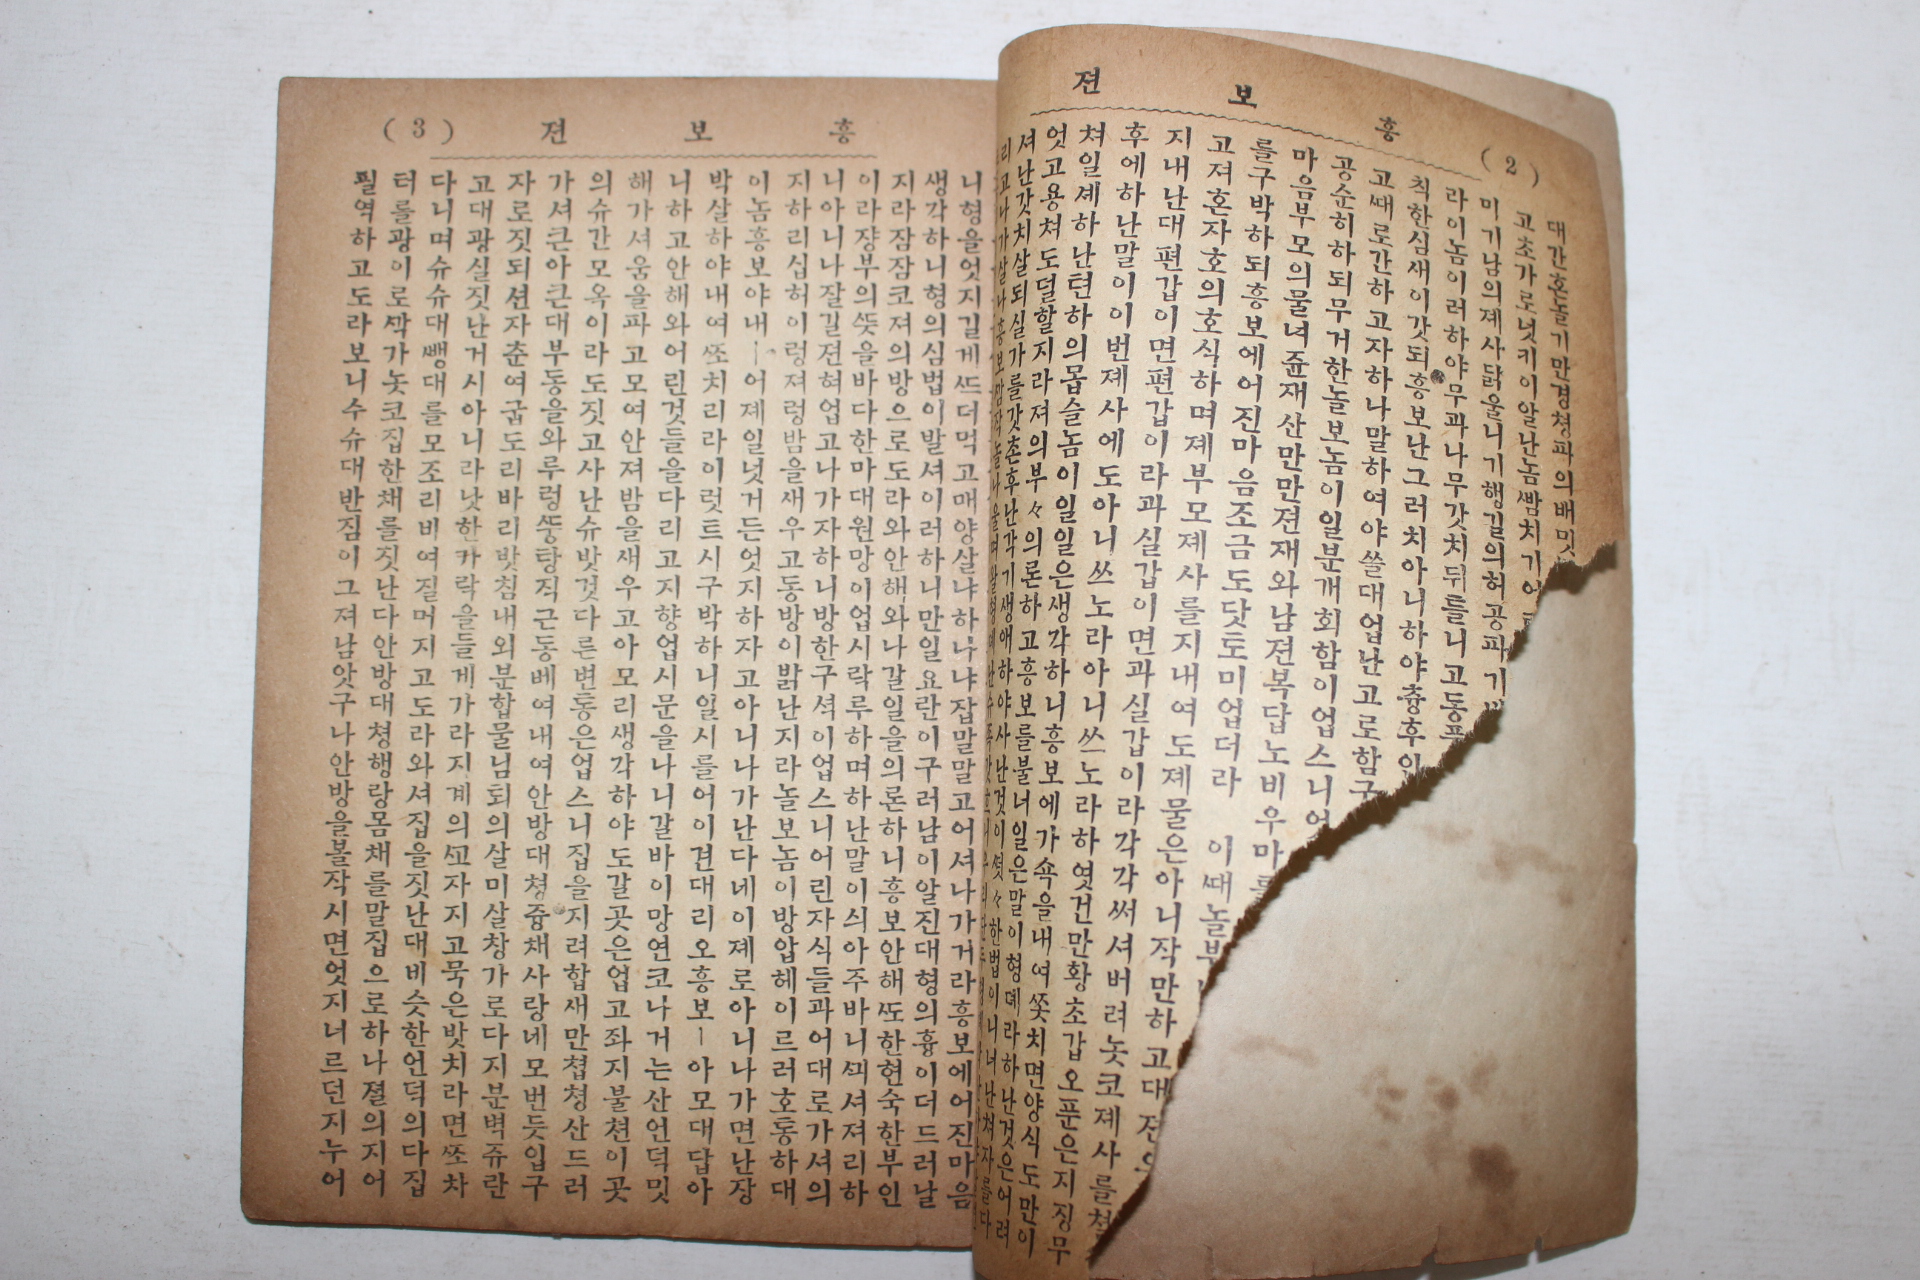 (2) 흥보젼
대간혼놀기만경청파의배밋
고초가로넛키이알난놈뺨치기
미기남의졔사닭울니기행길의허공파기
라이놈이러하야무과나무갓치뒤틀니고동푸
칙한심새이갓되흥보난그러치아니하야츙후인
고때로간하고자하나말하여야쓸대업난고로함구
공순히하되무거한놀보놈이일분개회함이업스니어
마음부모의물녀쥰재산만만젼재와남젼복답노비우마를
를구박하되흥보에어진마음조금도닷토미업더라 이때놀부
고져혼자호의호식하며졔부모졔사를지내여도졔물은아니작만하고대젼으
지내난대편갑이면편갑이라과실갑이면과실갑이라각각써셔버려놋코졔사를쳔
후에하난말이이번졔사에도아니쓰노라아니쓰노라하엿건만황초갑오푼은지징무
쳐일셰하난텬하의몹슬놈이일일은생각하니흥보에가쇽을내여쫏치면양식도만이
엇고용쳐도덜할지라져의부々의론하고흥보를불너일은말이형뎨라하난것은어려
셔난갓치살되실가를갓촌후난각기생애하야사난것이셧々한법이니너난쳐자를다
리고나가살나흥보깜작놀나울며
흥보젼 (3)
니형을엇지길게뜨더먹고매양살냐하나냐잡말말고어셔나가거라흥보에어진마음
생각하니형의심법이발셔이러하니만일요란이구러남이알진대형의흉이더드러날
지라잠잠코져의방으로도라와안해와나갈일을의론하니흥보안해또한현숙한부인
이라쟝부의뜻을바다한마대원망이업시락루하며하난말이싀아주바니끠셔져리하
니아니나잘길젼혀업고나가자하니방한구셕이업스니어린자식들과어대로가셔의
지하리십허이렁져렁밤을새우고동방이밝난지라놀보놈이방압헤이르러호통하대
이놈흥보야내ㅣ어졔일넛거든엇지하자고아니나가난다네이졔로아니나가면난장
박살하야내여쪼치리라이럿트시구박하니일시를어이견대리오흥보ㅣ아모대답아
니하고안해와어린것들을다리고지향업시문을나니갈바이망연코나거는산언덕밋
해가셔움을파고모여안져밤을새우고아모리생각하야도갈곳은업고좌지불쳔이곳
의슈간모옥이라도짓고사난슈밧것다른변통은업스니집을지려할새만쳡쳥산드러
가셔큰아큰대부동을와루렁뚱탕직근동베여내여안방대쳥즁채사랑네모번듯입구
자로짓되션자춘여굽도리바리밧침내외분합물님퇴의살미살창가로다지분벽쥬란
고대광실짓난거시아니라낫한가락을들게가라지계의꼬자지고묵은밧치라면쪼차
다니며슈슈대뺑대를모조리비여질머지고도라와셔집을짓난대비슷한언덕의다집
터를광이로싹가놋코집한채를짓난다안방대쳥행랑몸채를말집으로하나졀의지어
필역하고도라보니수슈대반짐이그져남앗구나안방을볼작시면엇지너르던지누어